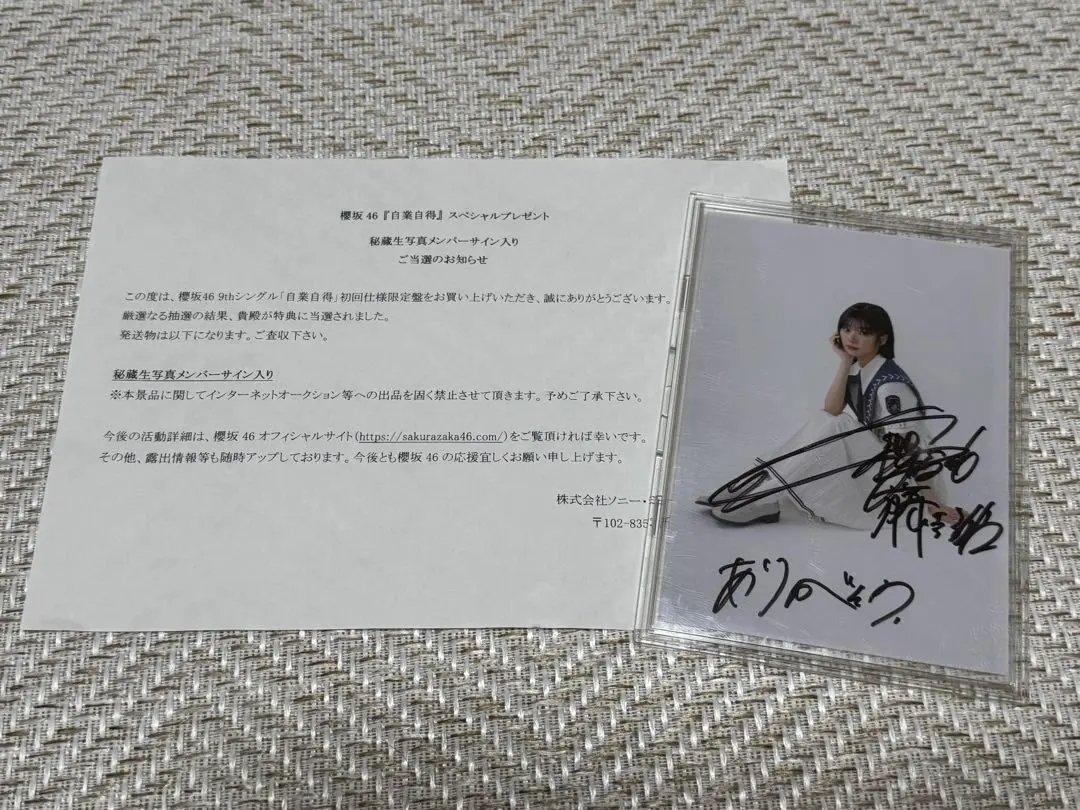 櫻坂 46『自業自得』スペシャルプレゼント
秘蔵生写真メンバーサイン入り
ご当選のお知らせ
この度は、櫻坂46 9thシングル「自業自得」初回仕様限定盤をお買い上げいただき、誠にありがとうございます。
厳選なる抽選の結果、貴殿が特典に当選されました。
発送物は以下になります。ご査収下さい。
秘蔵生写真メンバーサイン入り
※本景品に関してインターネットオークション等への出品を固く禁止させて頂きます。予めご了承下さい。
今後の活動詳細は、櫻坂 46 オフィシャルサイト(https://sakurazaka46.com/)をご覧頂ければ幸いです。
その他、露出情報等も随時アップしております。今後とも櫻坂 46 の応援宜しくお願い申し上げます。
株式会社ソニー・ミ
〒102-835
ありがとう